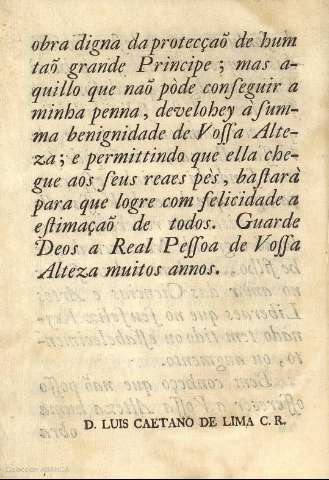 obra digna da protecçaõ de hum
taõ grande Principe ; mas a-
quillo que naõ pòde conſeguir a
minha penna, develohey à ſum-
ma benignidade de Voſſa Alte-
za ; e permittindo que ella che-
gue aos ſeus reaes pès, baſtarà
para que logre com felicidade a
eſtimaçaõ de todos. Guarde
Deos a Real Peſſoa de Voſſa
Alteza muitos annos.
D. LUIS CAETANO DE LIMA C. R.
Colección ABANCA